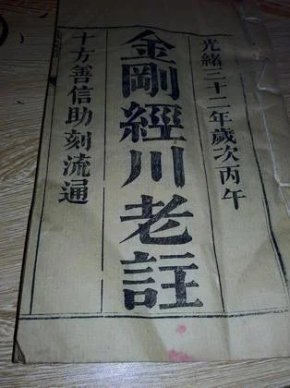 光緒三十二年歲次丙午
金剛經川老註
十方善信助刻流通